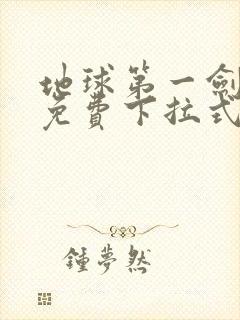 地球第一劍
免費下拉式
鍾夢然